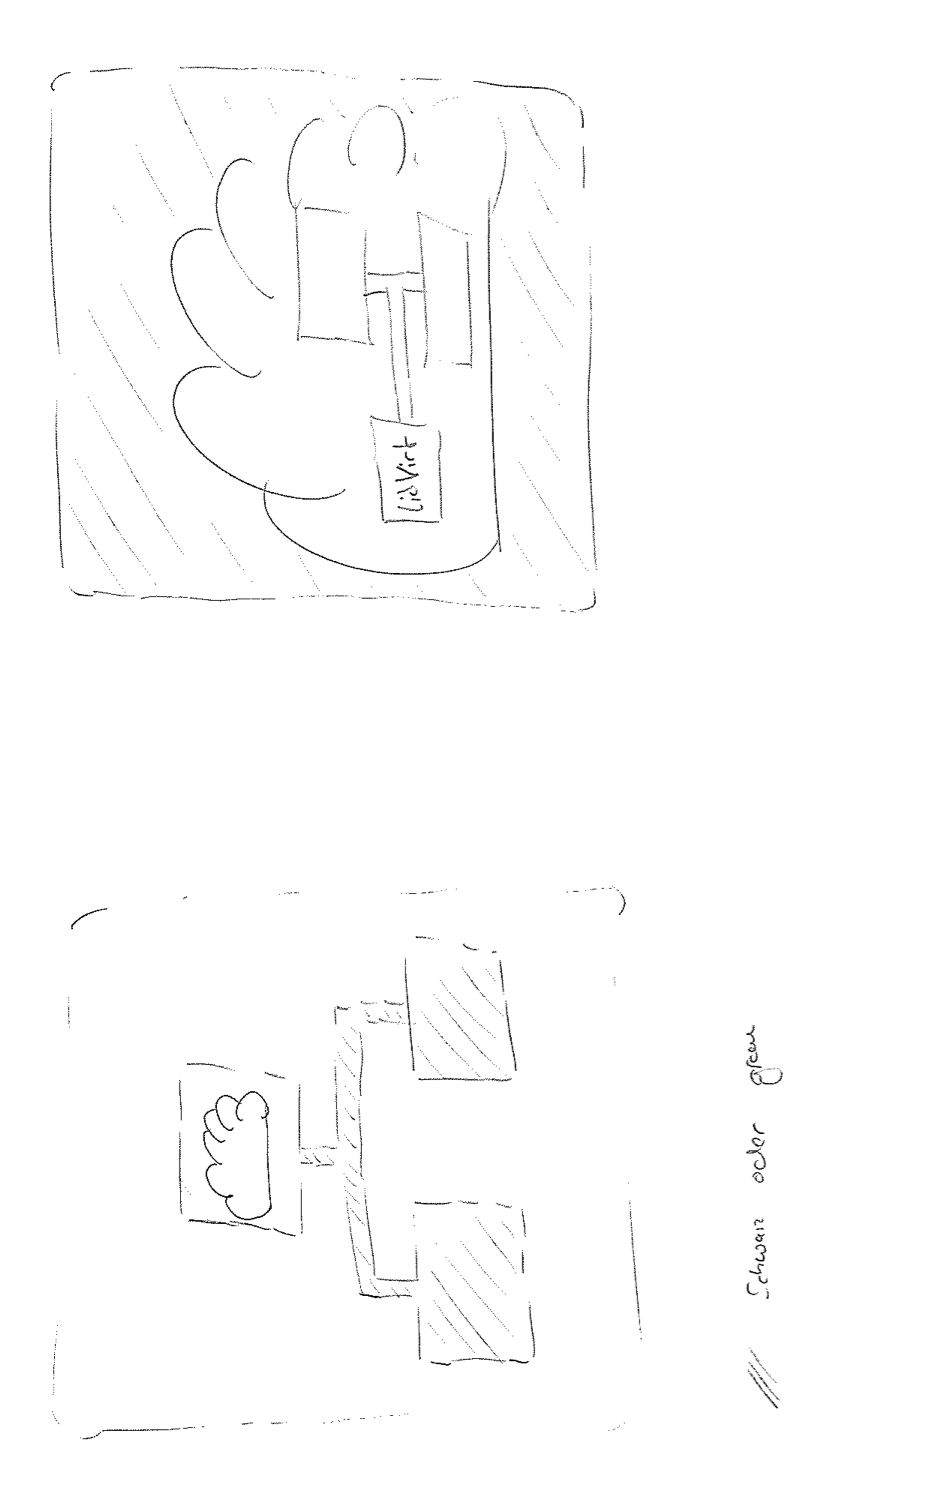 LibVirt
Schwarz oder green